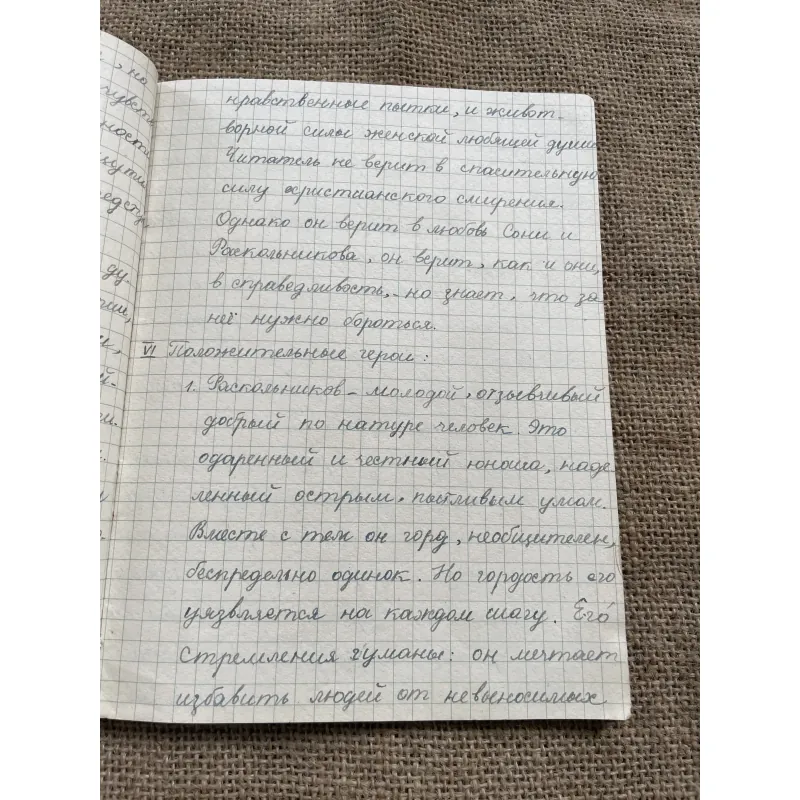 , но
чувст
ности
пути
редст
ду-
нравственные пытки, и живот-
ворной силы женской любящей души.
Читатель не верит в спасительную
силу христианского смирения.
Однако он верит в любовь Сони и
Раскольникова, он верит, как и они,
в справедливость, но знает, что за
неё нужно бороться.
VI Положительные герои:
1. Раскольников – молодой, отзывчивый
добрый по натуре человек. Это
одаренный и честный юноша, наде
ленный острым, пытливым умом.
Вместе с тем он горд, необщителен,
беспредельно одинок. Но гордость его
уязвляется на каждом шагу. Его
стремления гуманы: он мечтает
избавить людей от невыносимых